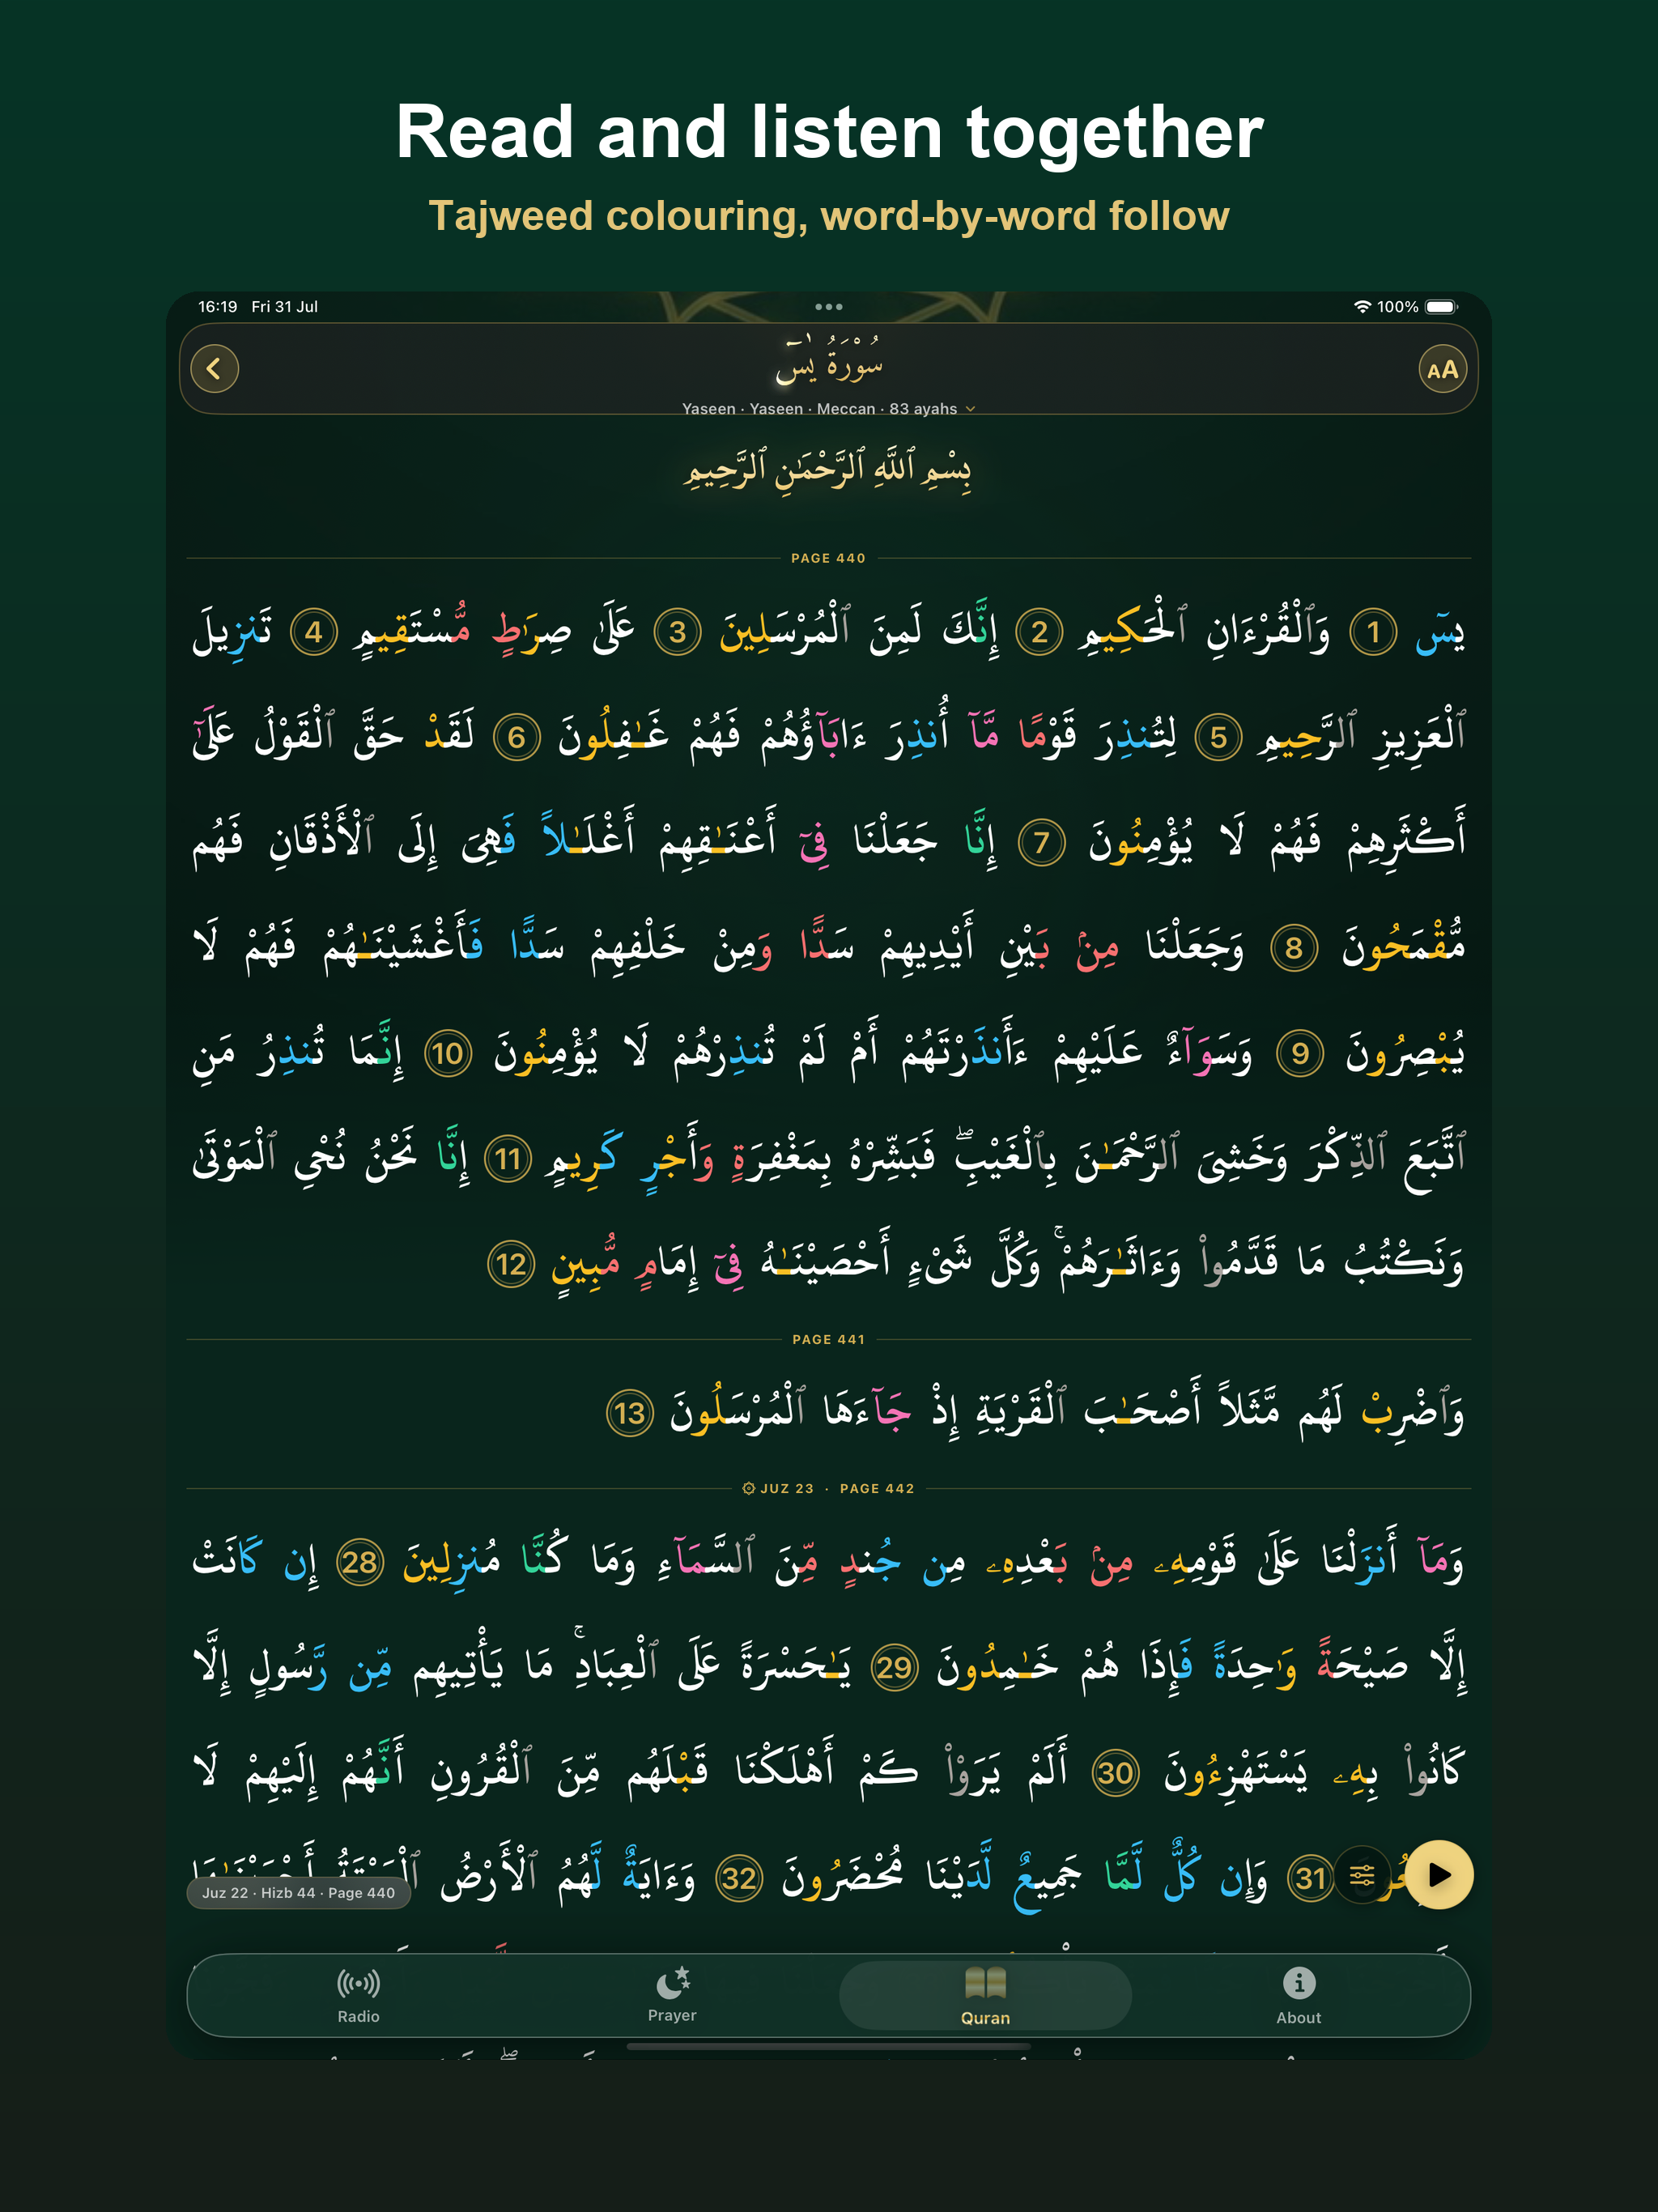 Read and listen together
Tajweed colouring, word-by-word follow
16:19 Fri 31 Jul
100%
سُورَةُ يسٓ
AA
Yaseen · Yaseen · Meccan · 83 ayahs
بِسْمِ ٱللَّهِ ٱلرَّحْمَـٰنِ ٱلرَّحِيمِ
PAGE 440
يسٓ 1 وَٱلْقُرْءَانِ ٱلْحَكِيمِ 2 إِنَّكَ لَمِنَ ٱلْمُرْسَلِينَ 3 عَلَىٰ صِرَٰطٍ مُّسْتَقِيمٍ 4 تَنزِيلَ
ٱلْعَزِيزِ ٱلرَّحِيمِ 5 لِتُنذِرَ قَوْمًا مَّآ أُنذِرَ ءَابَآؤُهُمْ فَهُمْ غَـٰفِلُونَ 6 لَقَدْ حَقَّ ٱلْقَوْلُ عَلَىٰٓ
أَكْثَرِهِمْ فَهُمْ لَا يُؤْمِنُونَ 7 إِنَّا جَعَلْنَا فِىٓ أَعْنَـٰقِهِمْ أَغْلَـٰلاً فَهِىَ إِلَى ٱلْأَذْقَانِ فَهُم
مُّقْمَحُونَ 8 وَجَعَلْنَا مِنۢ بَيْنِ أَيْدِيهِمْ سَدًّا وَمِنْ خَلْفِهِمْ سَدًّا فَأَغْشَيْنَـٰهُمْ فَهُمْ لَا
يُبْصِرُونَ 9 وَسَوَآءٌ عَلَيْهِمْ ءَأَنذَرْتَهُمْ أَمْ لَمْ تُنذِرْهُمْ لَا يُؤْمِنُونَ 10 إِنَّمَا تُنذِرُ مَنِ
ٱتَّبَعَ ٱلذِّكْرَ وَخَشِىَ ٱلرَّحْمَـٰنَ بِٱلْغَيْبِ ۖ فَبَشِّرْهُ بِمَغْفِرَةٍ وَأَجْرٍ كَرِيمٍ 11 إِنَّا نَحْنُ نُحْىِ ٱلْمَوْتَىٰ
وَنَكْتُبُ مَا قَدَّمُوا۟ وَءَاثَـٰرَهُمْ ۚ وَكُلَّ شَىْءٍ أَحْصَيْنَـٰهُ فِىٓ إِمَامٍ مُّبِينٍ 12
PAGE 441
وَٱضْرِبْ لَهُم مَّثَلاً أَصْحَـٰبَ ٱلْقَرْيَةِ إِذْ جَآءَهَا ٱلْمُرْسَلُونَ 13
JUZ 23 · PAGE 442
وَمَآ أَنزَلْنَا عَلَىٰ قَوْمِهِۦ مِنۢ بَعْدِهِۦ مِن جُندٍ مِّنَ ٱلسَّمَآءِ وَمَا كُنَّا مُنزِلِينَ 28 إِن كَانَتْ
إِلَّا صَيْحَةً وَٰحِدَةً فَإِذَا هُمْ خَـٰمِدُونَ 29 يَـٰحَسْرَةً عَلَى ٱلْعِبَادِ ۚ مَا يَأْتِيهِم مِّن رَّسُولٍ إِلَّا
كَانُوا۟ بِهِۦ يَسْتَهْزِءُونَ 30 أَلَمْ يَرَوْا۟ كَمْ أَهْلَكْنَا قَبْلَهُم مِّنَ ٱلْقُرُونِ أَنَّهُمْ إِلَيْهِمْ لَا
31 وَإِن كُلٌّ لَّمَّا جَمِيعٌ لَّدَيْنَا مُحْضَرُونَ 32 وَءَايَةٌ لَّهُمُ ٱلْأَرْضُ
Juz 22 · Hizb 44 · Page 440
Radio
Prayer
Quran
About